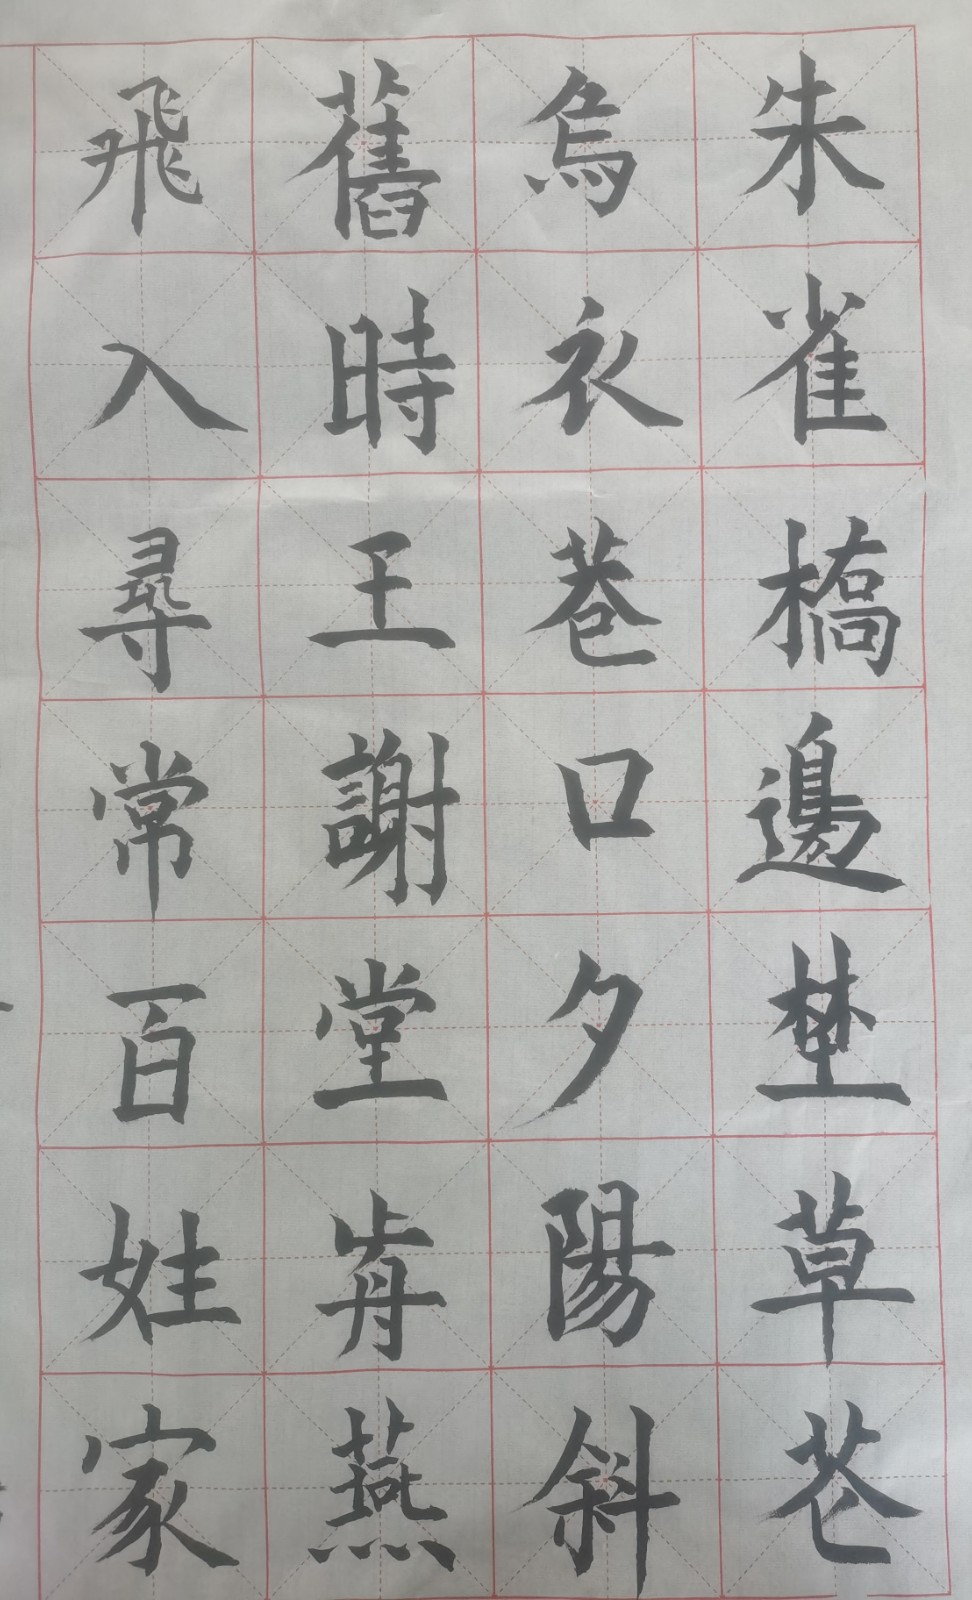 朱雀橋邊埜草花
烏衣巷口夕陽斜
舊時王謝堂歬燕
飛入尋常百姓家